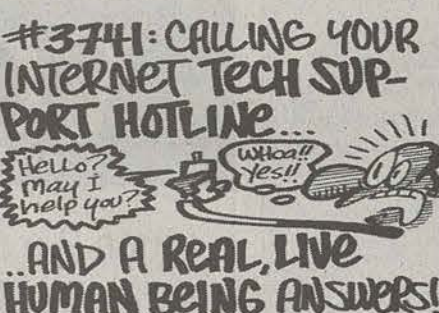 #3741: CALLING YOUR
INTERNET TECH SUP-
PORT HOTLINE...
Hello?
May I
help you?
Whoa!!
Yes!!
..AND A REAL, LIVE
HUMAN BEING ANSWERS!